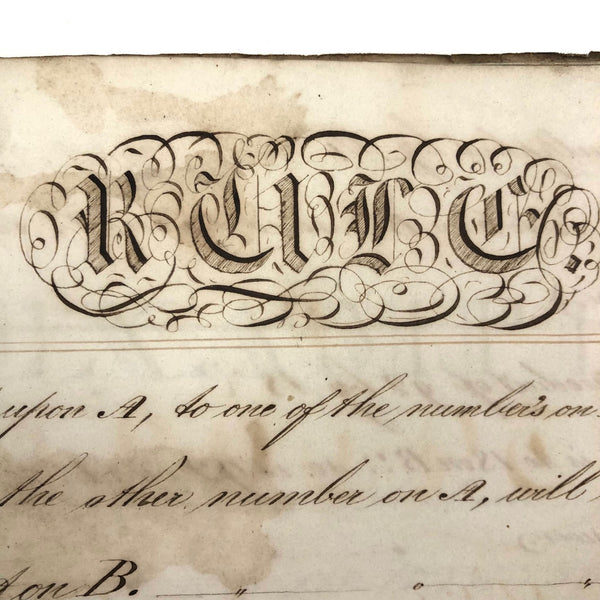 RULE
upon A, to one of the number's on
the other number on A, will
on B.